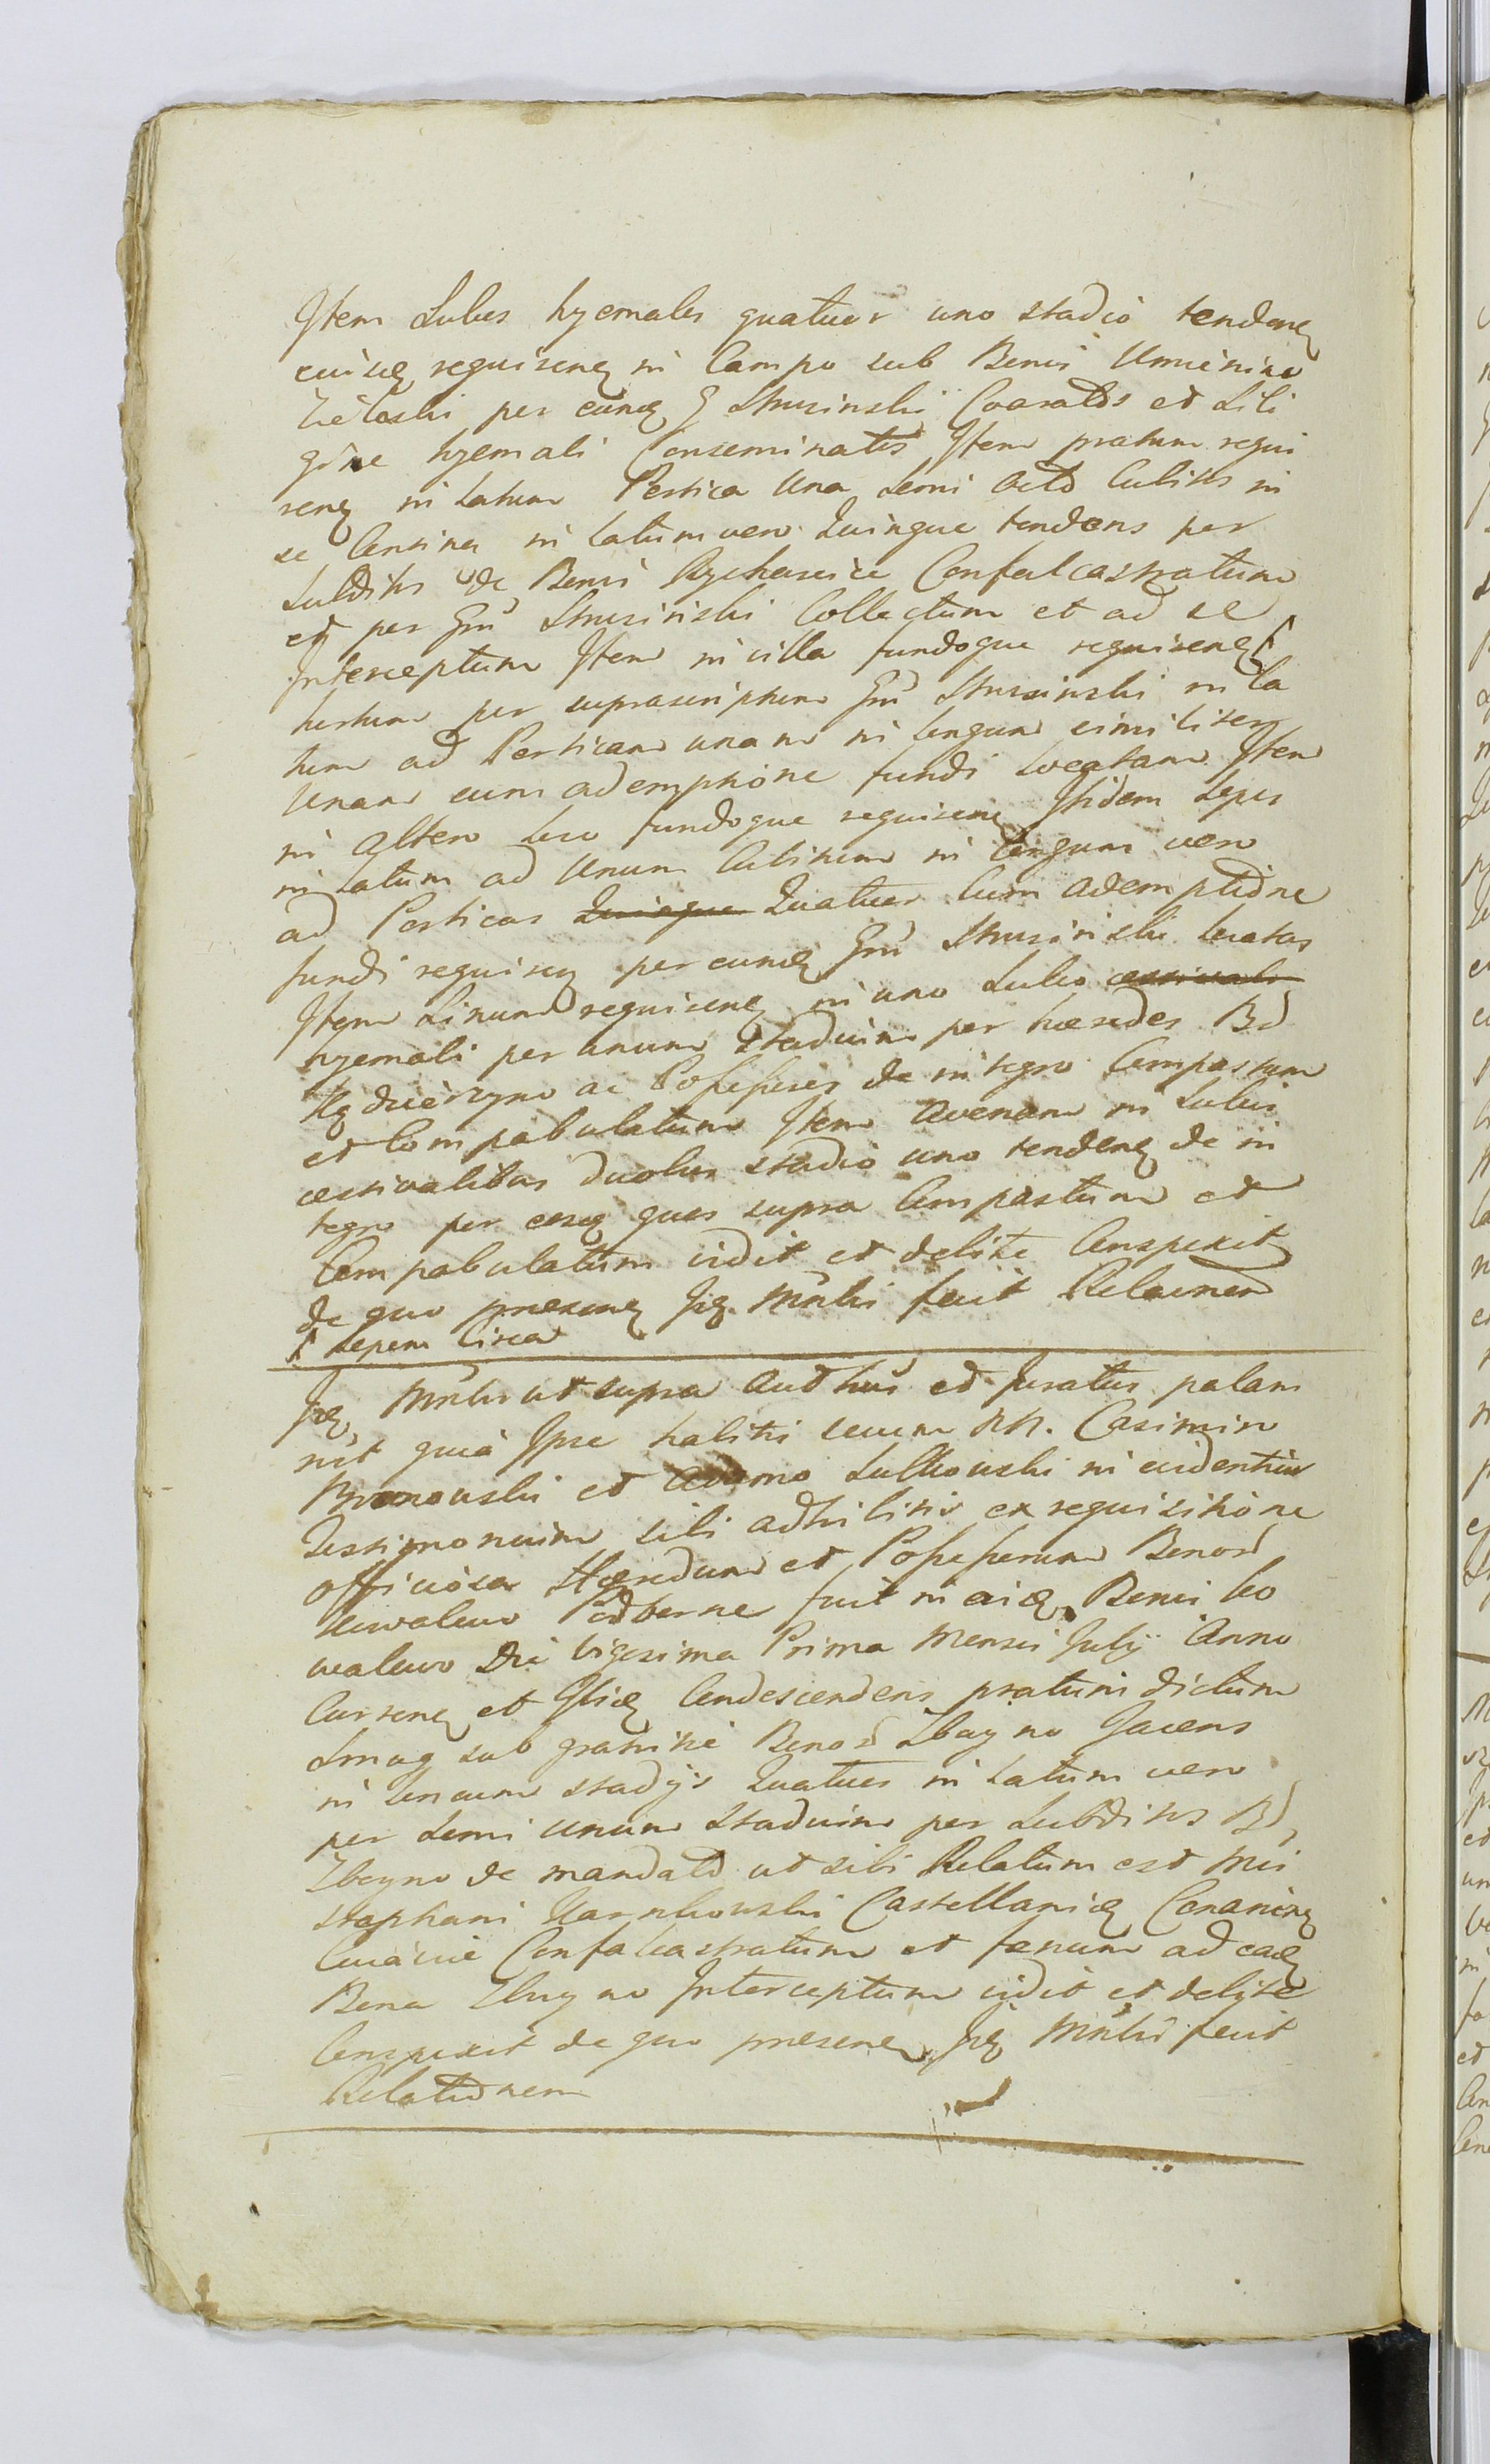 Item Sulcos hyemales quatuor uno stadio tenden
eius requisen in Campo sub Bonis Unienino
per eund G Strusinski Coarat͠os et Sili
gine hyemali Conseminatos Item pratum requi
sen in latum Pertica Una Semi acto Cubitos in
se Contines in latum vero Quinque tendens per
Subditos de Bonis Rychowice Confalcastratum
et per Grū Strusinski Collectum et ad se
Interceptum Item in villa fundoque requisen
hortum per suprascriptum Grū Strusinski in la
tum ad Perticam unam in longum similiter
Unam cum ademptione fundi locatam Item
in altero loco fundoque requisen Ibidem Sepes
in latum ad Unum Cubitum in longum vero
ad Perticas Quinque Quatuor Cum ademptione
fundi requisen per eund Grū Strusinski locatas
Item Linum requisen in uno Sulco aestivali
hyemali per unum Stadium per haeredes Bd
ac Possessores de integro Compastum
et Compabulatum Item avenam in Sulcis
aestivalibus duobus stadio uno tenden de in
tegro per eosq quos supra Compastum et
Compabulatum vidit et debite Conspexit
de quo praesens Idq Mnlis fecit Relaonem
Sepem Circa
Idq Mnlis ut supra auth͠us et Juratus palam
rūt quia Ipse habitis secum NN. Casimiro
Bronowski et Adamo Sulkowski in evidentius
Testimonium sibi adhibitis ex requisitione
officiosa Haeredum et Possessorum Bonor
Kowalewo Podborne fuit in eisd Bonis Ko
walewo Die Vigesima Prima Mensis Julij Anno
Curren et Ibiq Condescendens pratum dictum
Smug sub granitie Bonor Zboyno Jacens
in longum stadijs Quatuor in latum vero
per Semi unum Stadium per Subditos Bd
Zboyno de mandato ut sibi Relatum est Mci
Stephani Karnkowski Castellanid Conarien
Cuiavie Confalcastratum et fenum ad ead
Bona Zboyno Interceptum vidit et debite
Conspexit de quo praesens Idq Mnlis fecit
Relationem